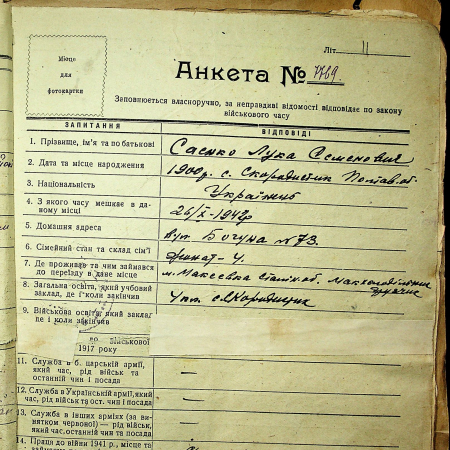 Літ. 11
Місце
для
фотокартки
Анкета № 7769.
Заповнюється власноручно, за неправдиві відомості відповідає по закону
військового часу
ЗАПИТАННЯ ВІДПОВІДІ
1. Прізвище, ім'я та по батькові Саєнко Лука Семенович
2. Дата та місце народження 1900 р. с. Скородистик Полтав. об.
3. Національність Українець
4. З якого часу мешкає в даному місці 26/X-1942р
5. Домашня адреса вул. Богуна № 73.
6. Сімейний стан та склад сім'ї Женат - 4.
7. Де проживав та чим займався
до переїзду в дане місце м. Макеевка Сталін. об.
8. Загальна освіта, який учбовий
заклад, де і коли закінчив с. Скородищик
9. Військова освіта, який заклад
де і коли закінчив
до військової
1917 року
11. Служба в б. царській армії,
який час, рід військ та
останній чин і посада —
12. Служба в Українській армії, який
час, рід військ та ост. чин і посада —
13. Служба в інших арміях (за ви-
нятком червоної) — рід військ,
який час, останній чин та посада —
14. Праця до війни 1941 р., місце та